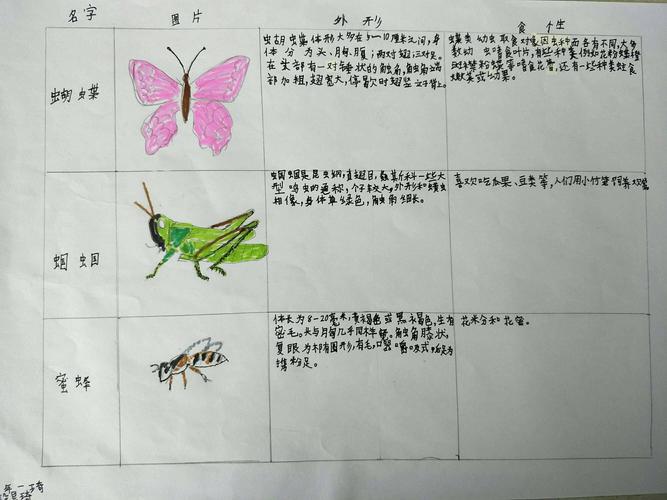 名字 图片 外形 食性
蝴蝶
虫胡虫蝶体形大多在5—10厘米之间,身
体分为头、胸、腹;两对翅,三对足。
在头部有一对棒状的触角,触角端
部加粗,翅宽大,停歇时翅竖立于背上。
蝶类幼虫取食对象因虫种而各有不同,大多
数幼虫啃食叶片,有些种类例如花粉蝶
粉蝶等啃食花蕾,还有一些种类蛀食
嫩荚或幼果。
蝈蝈
蝈蝈是昆虫纲,直翅目,螽斯科一些大
型鸣虫的通称,个子较大,外形和蝗虫
相像,身体草绿色,触角细长。
喜欢吃瓜果、豆类等,人们用小竹笼饲养
蜜蜂
体长为8—20毫米,黄褐色或黑褐色,生有
密毛。头与胸几乎同样宽。触角膝状,
复眼为椭圆形,有毛,口器嚼吸式,后足为
携粉足。
花粉和花蜜。